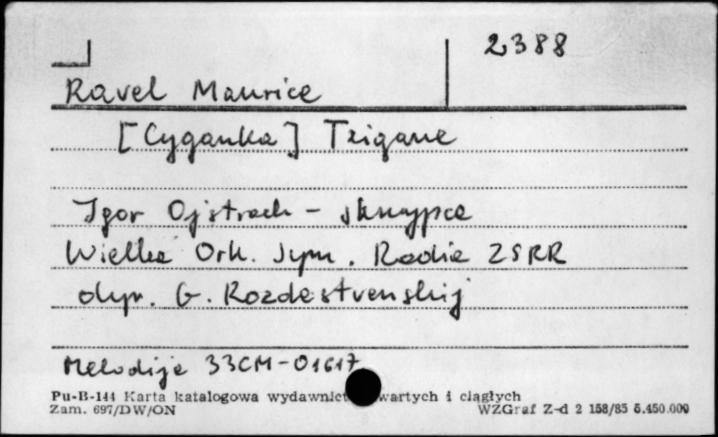 2388
Ravel Maurice
[Cyganka] Tzigane
Igor Ojstrach - skrzypce
Wielka Ork. Sym. Radia ZSRR
dyr. G. Rozdestvenskij
Melodija 33CM-01617
Pu-B-144 Karta katalogowa wydawnict wartych i ciągłych
Zam. 697/DW/ON WZGraf Z-d 2 158/85 5.450.000